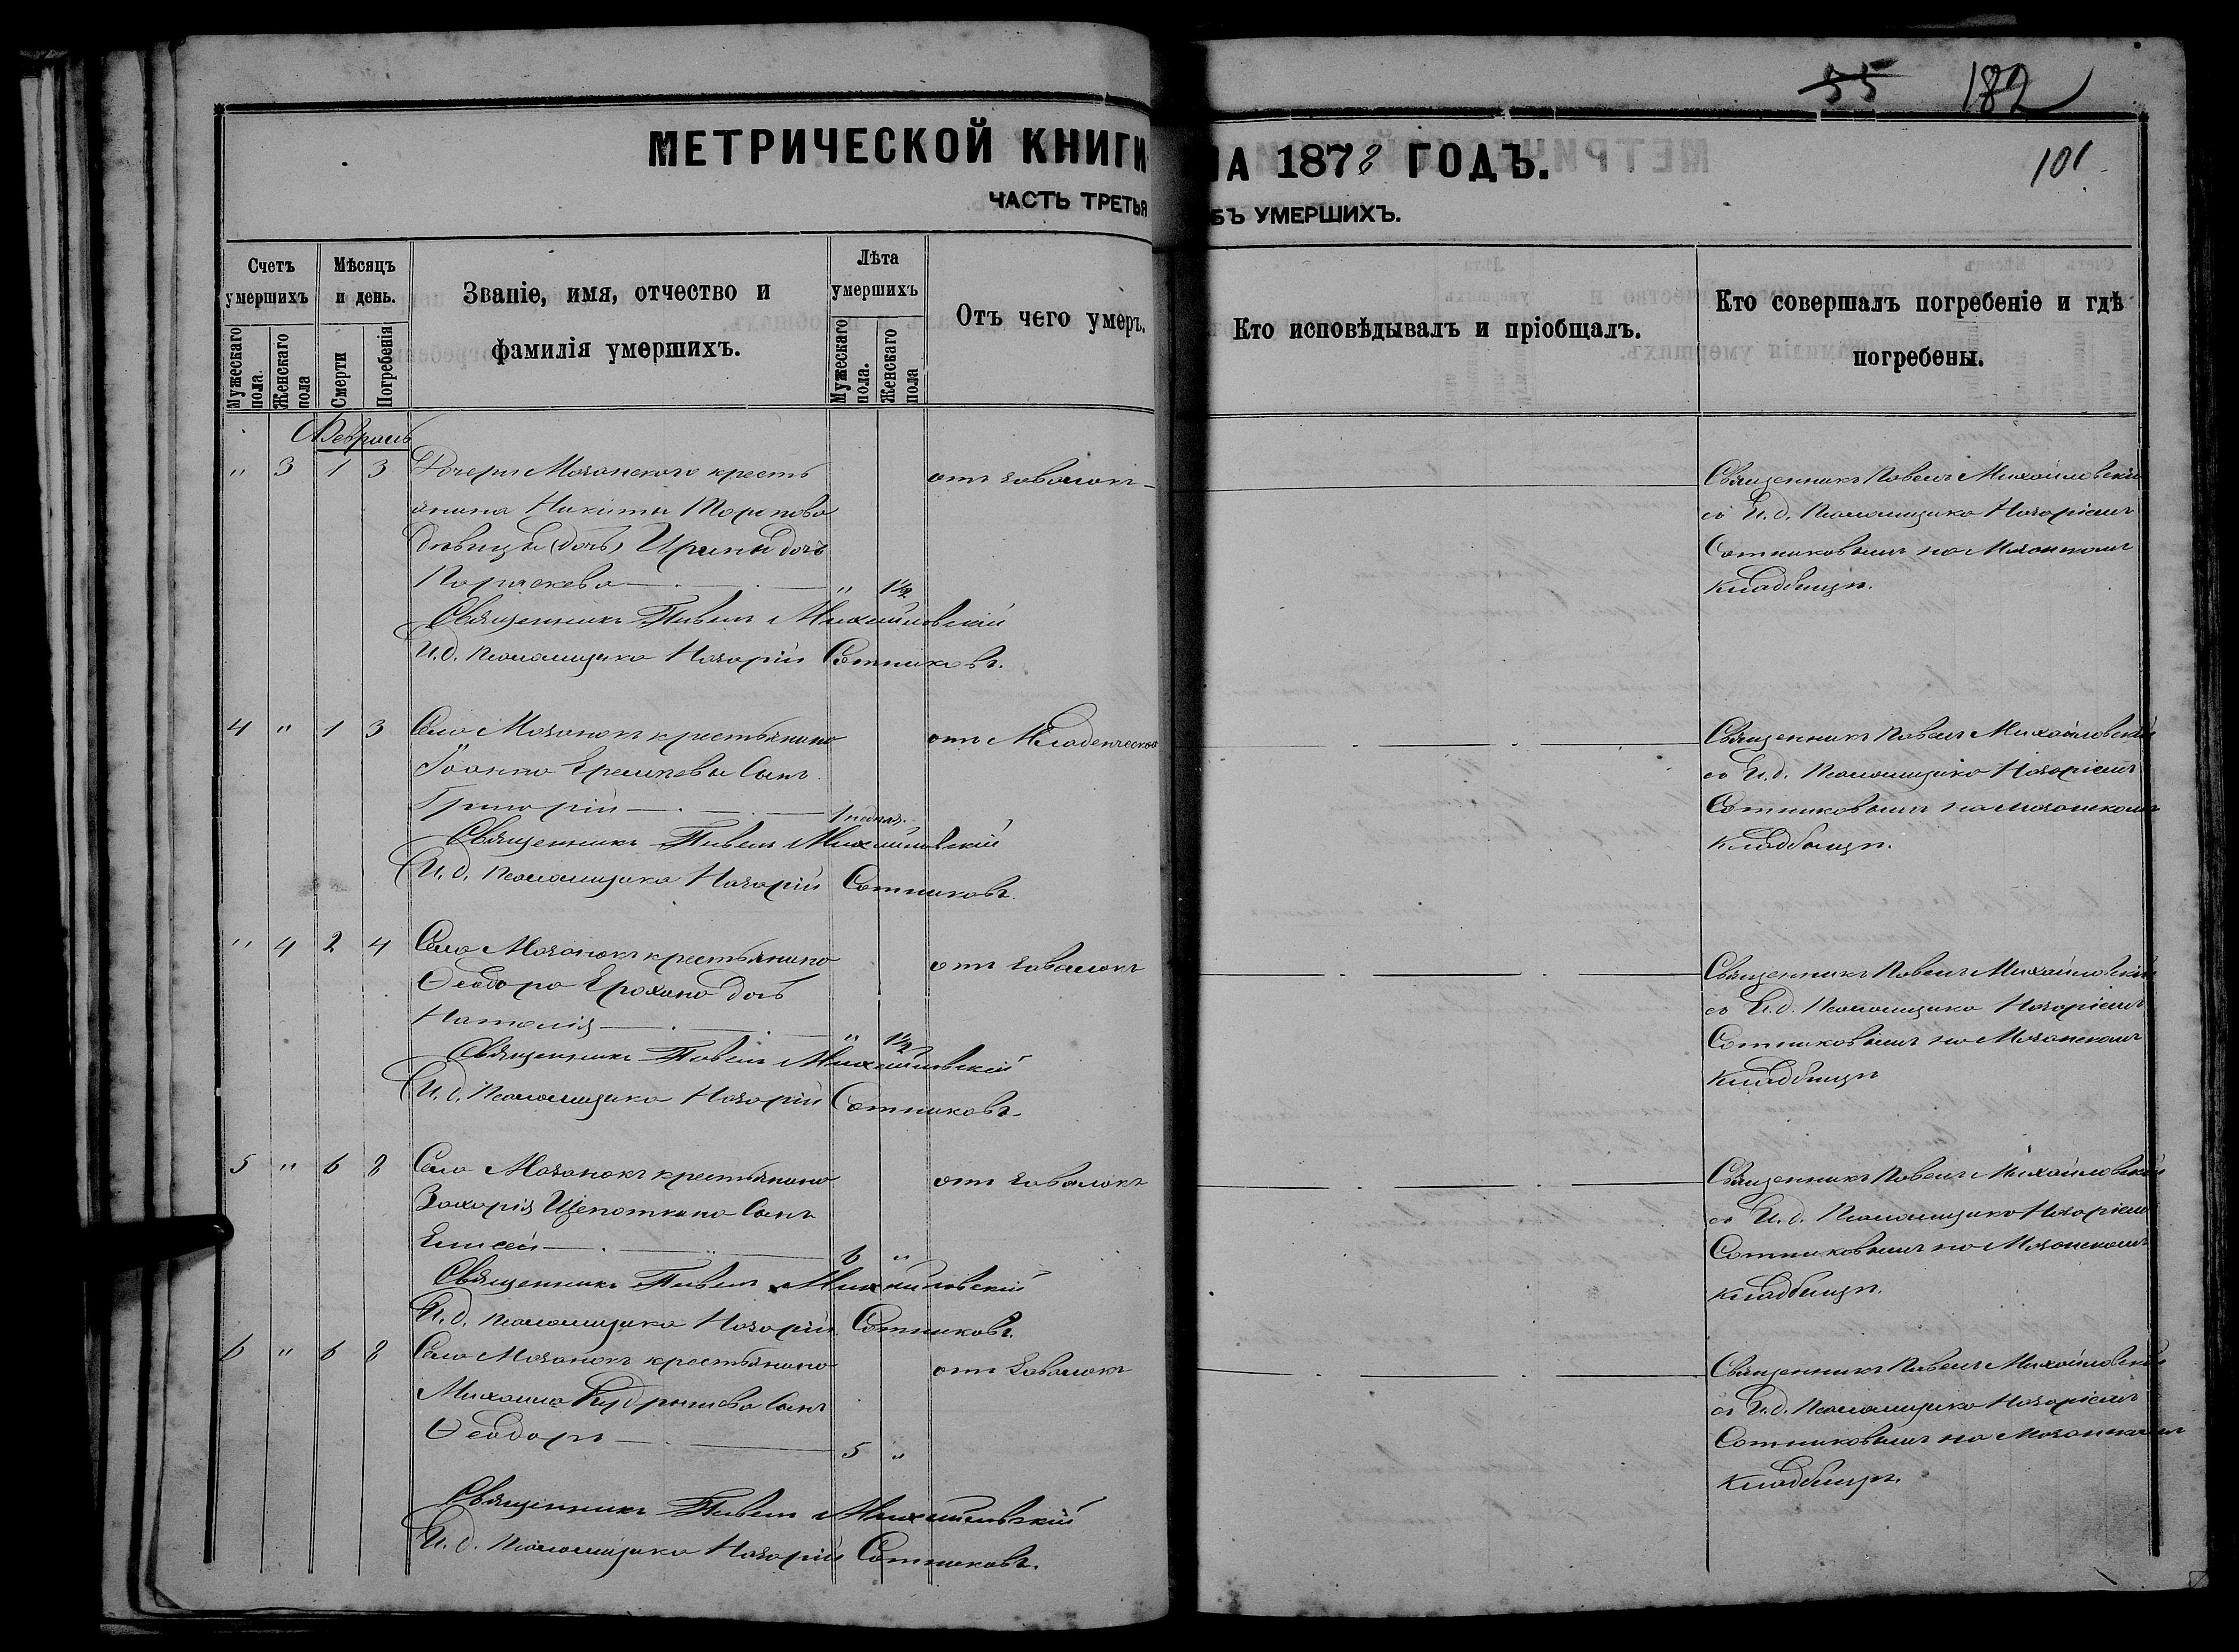 55 182
МЕТРИЧЕСКОЙ КНИГИ НА 1878 ГОДЪ.
101
ЧАСТЬ ТРЕТЬЯ БЪ УМЕРШИХЪ.
Счетъ умершихъ
Мужескаго пола.
Женскаго пола
Мѣсяцъ и день.
Смерти
Погребенія
Званіе, имя, отчество и
фамилія умершихъ.
Лѣта умершихъ
Мужескаго пола.
Женскаго пола
Отъ чего умеръ.
Кто исповѣдывалъ и пріобщалъ.
Кто совершалъ погребеніе и гдѣ
погребены.
Февраль
" 3 1 3 Дочери Мазанскаго кресть
янина Никиты
дѣвицы (дочь) Ирины дочь
Параскева " 1½
Священникъ Павелъ Михайловскій
И.д. Псаломщика Назарій Сотниковъ.
Священникъ Павелъ Михайловскій
съ И.д. Псаломщика Назаріемъ
Сотниковымъ на Мазанскомъ
кладбищѣ.
4 " 1 3 Села Мазанокъ крестьянина
Іоанна сынъ
Григорій 1 недѣля.
отъ Младенческой
Священникъ Павелъ Михайловскій
И.д. Псаломщика Назарій Сотниковъ.
Священникъ Павелъ Михайловскій
съ И.д. Псаломщика Назаріемъ
Сотниковымъ на Мазанскомъ
кладбищѣ.
" 4 2 4 Села Мазанокъ крестьянина
Ѳеодора Ерохина дочь
Наталія " 1½
Священникъ Павелъ Михайловскій
И.д. Псаломщика Назарій Сотниковъ.
Священникъ Павелъ Михайловскій
съ И.д. Псаломщика Назаріемъ
Сотниковымъ на Мазанскомъ
кладбищѣ
5 " 6 8 Села Мазанокъ крестьянина
Захарія Щепоткина сынъ
Елисей 6 "
Священникъ Павелъ Михайловскій
И.д. Псаломщика Назарій Сотниковъ.
Священникъ Павелъ Михайловскій
съ И.д. Псаломщика Назаріемъ
Сотниковымъ на Мазанскомъ
кладбищѣ.
6 " 6 8 Села Мазанокъ крестьянина
Михаила Кудряшева сынъ
Ѳеодоръ 5 "
Священникъ Павелъ Михайловскій
И.д. Псаломщика Назарій Сотниковъ.
Священникъ Павелъ Михайловскій
съ И.д. Псаломщика Назаріемъ
Сотниковымъ на Мазанскомъ
кладбищѣ.